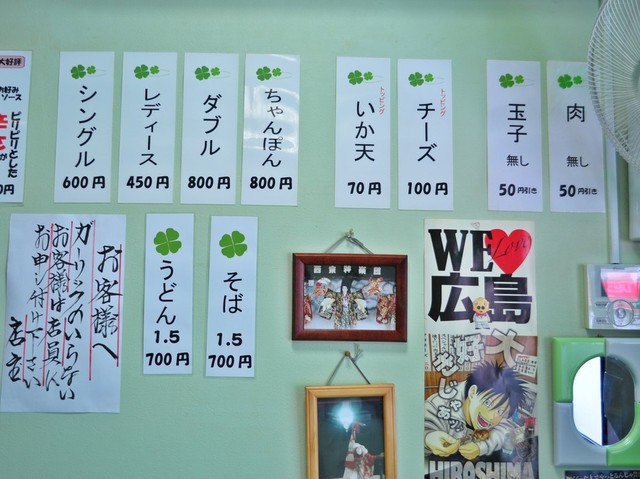 大好評
お好み
ソース
ピリピリとした
シングル
600円
レディース
450円
ダブル
800円
ちゃんぽん
800円
トッピング
いか天
70円
トッピング
チーズ
100円
玉子
無し
50円引き
肉
無し
50円引き
お客様へ
ガーリックのいらない
お客様は店員に
お申し付け下さい
店主
うどん
1.5
700円
そば
1.5
700円
WE
広島
大好
HIROSHIMA